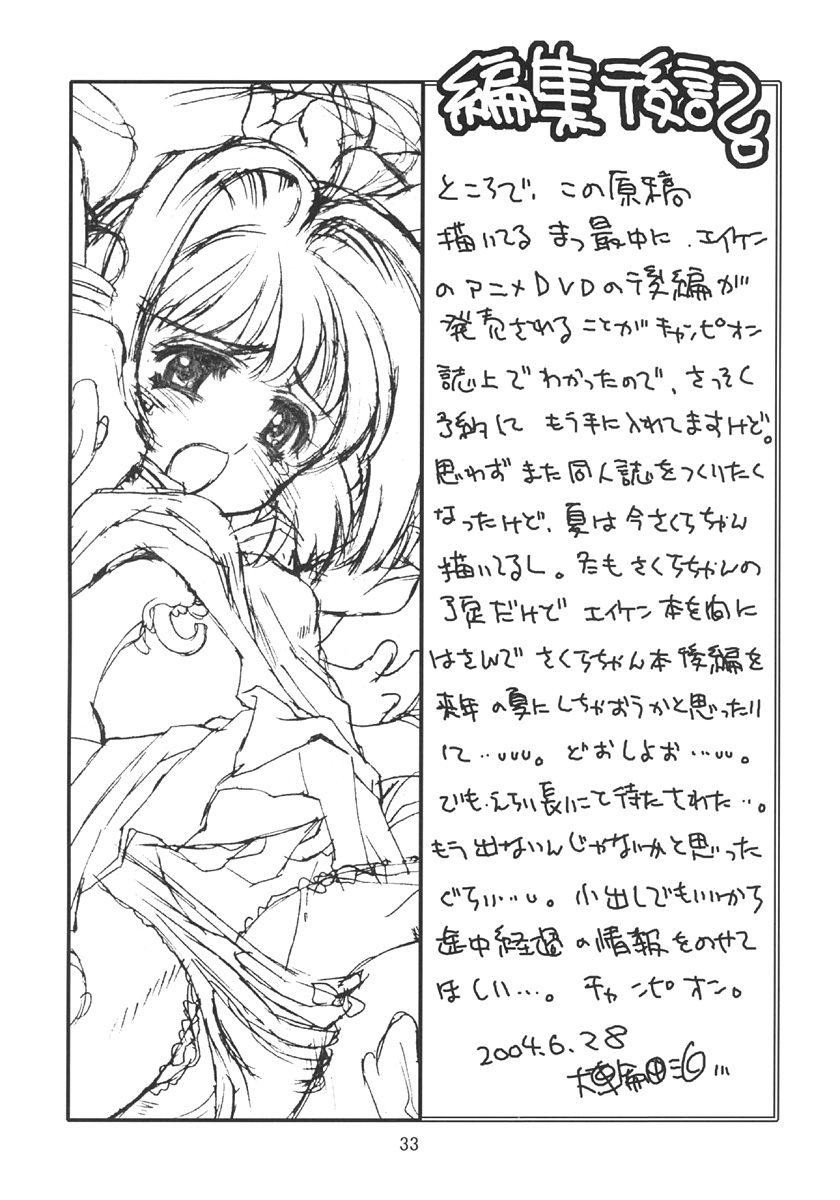 編集後記
ところで、この原稿
描いてるまっ最中に、エイケン
のアニメDVDの後編が
発売されることがチャンピオン
誌上でわかったので、さっそく
予約して もう手に入れてますけど。
思わずまた同人誌をつくりたく
なったけど、夏は今さくらちゃん
描いてるし。冬もさくらちゃんの
予定だけど エイケン本を間に
はさんで さくらちゃん本後編を
来年の夏にしちゃおうかと思ったり
して…。どおしよお…。
でも、えらい長いこと待たされた…。
もう出ないんじゃないかと思った
ぐらい…。小出しでもいいから
途中経過の情報をのせて
ほしい…。チャンピオン。
2004.6.28
33